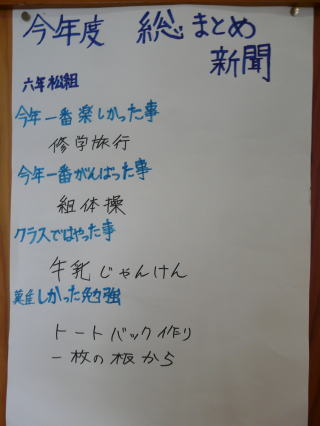 今年度 総まとめ
新聞
六年松組
今年一番楽しかった事
修学旅行
今年一番がんばった事
組体操
クラスではやった事
牛乳じゃんけん
難しかった勉強
トートバック作り
一枚の板から